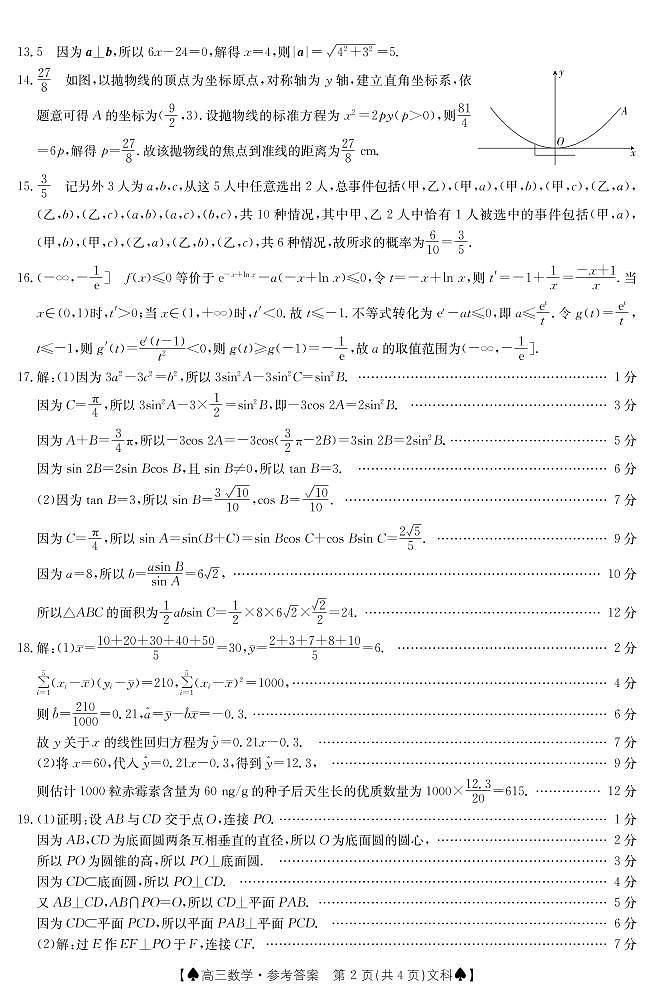 13. 5　因为 a⊥b,所以 6x−24=0,解得 x=4,则|a|=√(4²+3²)=5.
14. 27/8　如图,以抛物线的顶点为坐标原点,对称轴为 y 轴,建立直角坐标系,依
题意可得 A 的坐标为(9/2,3). 设抛物线的标准方程为 x²=2py(p>0),则81/4
=6p,解得 p=27/8. 故该抛物线的焦点到准线的距离为27/8 cm.
y
A
O
x
15. 3/5　记另外 3 人为 a,b,c,从这 5 人中任意选出 2 人,总事件包括(甲,乙),(甲,a),(甲,b),(甲,c),(乙,a),
(乙,b),(乙,c),(a,b),(a,c),(b,c),共 10 种情况,其中甲、乙 2 人中恰有 1 人被选中的事件包括(甲,a),
(甲,b),(甲,c),(乙,a),(乙,b),(乙,c),共 6 种情况,故所求的概率为6/10=3/5.
16. (−∞,−1/e]　f(x)≤0 等价于 e^(−x+ln x)−a(−x+ln x)≤0,令 t=−x+ln x,则 t′=−1+1/x=(−x+1)/x. 当
x∈(0,1)时,t′>0;当 x∈(1,+∞)时,t′<0. 故 t≤−1. 不等式转化为 e^t−at≤0,即 a≤e^t/t. 令 g(t)=e^t/t,
t≤−1,则 g′(t)=e^t(t−1)/t²<0,则 g(t)≥g(−1)=−1/e,故 a 的取值范围为(−∞,−1/e].
17. 解:(1)因为 3a²−3c²=b²,所以 3sin²A−3sin²C=sin²B. …… 1 分
因为 C=π/4,所以 3sin²A−3×1/2=sin²B,即−3cos 2A=2sin²B. …… 3 分
因为 A+B=3/4π,所以−3cos 2A=−3cos(3/2π−2B)=3sin 2B=2sin²B. …… 5 分
因为 sin 2B=2sin Bcos B,且 sin B≠0,所以 tan B=3. …… 6 分
(2)因为 tan B=3,所以 sin B=3√10/10,cos B=√10/10. …… 7 分
因为 C=π/4,所以 sin A=sin(B+C)=sin Bcos C+cos Bsin C=2√5/5. …… 9 分
因为 a=8,所以 b=asin B/sin A=6√2, …… 10 分
所以△ABC 的面积为1/2absin C=1/2×8×6√2×√2/2=24. …… 12 分
18. 解:(1)x̄=(10+20+30+40+50)/5=30,ȳ=(2+3+7+8+10)/5=6. …… 2 分
∑_{i=1}^{5}(xᵢ−x̄)(yᵢ−ȳ)=210,∑_{i=1}^{5}(xᵢ−x̄)²=1000, …… 4 分
则 b̂=210/1000=0.21,â=ȳ−b̂x̄=−0.3. …… 6 分
故 y 关于 x 的线性回归方程为 ŷ=0.21x−0.3. …… 7 分
(2)将 x=60,代入 ŷ=0.21x−0.3,得到 ŷ=12.3, …… 9 分
则估计 1000 粒赤霉素含量为 60 ng/g 的种子后天生长的优质数量为 1000×12.3/20=615. …… 12 分
19. (1)证明:设 AB 与 CD 交于点 O,连接 PO. …… 1 分
因为 AB,CD 为底面圆两条互相垂直的直径,所以 O 为底面圆的圆心, …… 2 分
所以 PO 为圆锥的高,所以 PO⊥底面圆. …… 3 分
因为 CD⊂底面圆,所以 PO⊥CD. …… 4 分
又 AB⊥CD,AB∩PO=O,所以 CD⊥平面 PAB. …… 5 分
因为 CD⊂平面 PCD,所以平面 PAB⊥平面 PCD. …… 6 分
(2)解:过 E 作 EF⊥PO 于 F,连接 CF. …… 7 分
【♠高三数学·参考答案　第 2 页(共 4 页)文科♠】